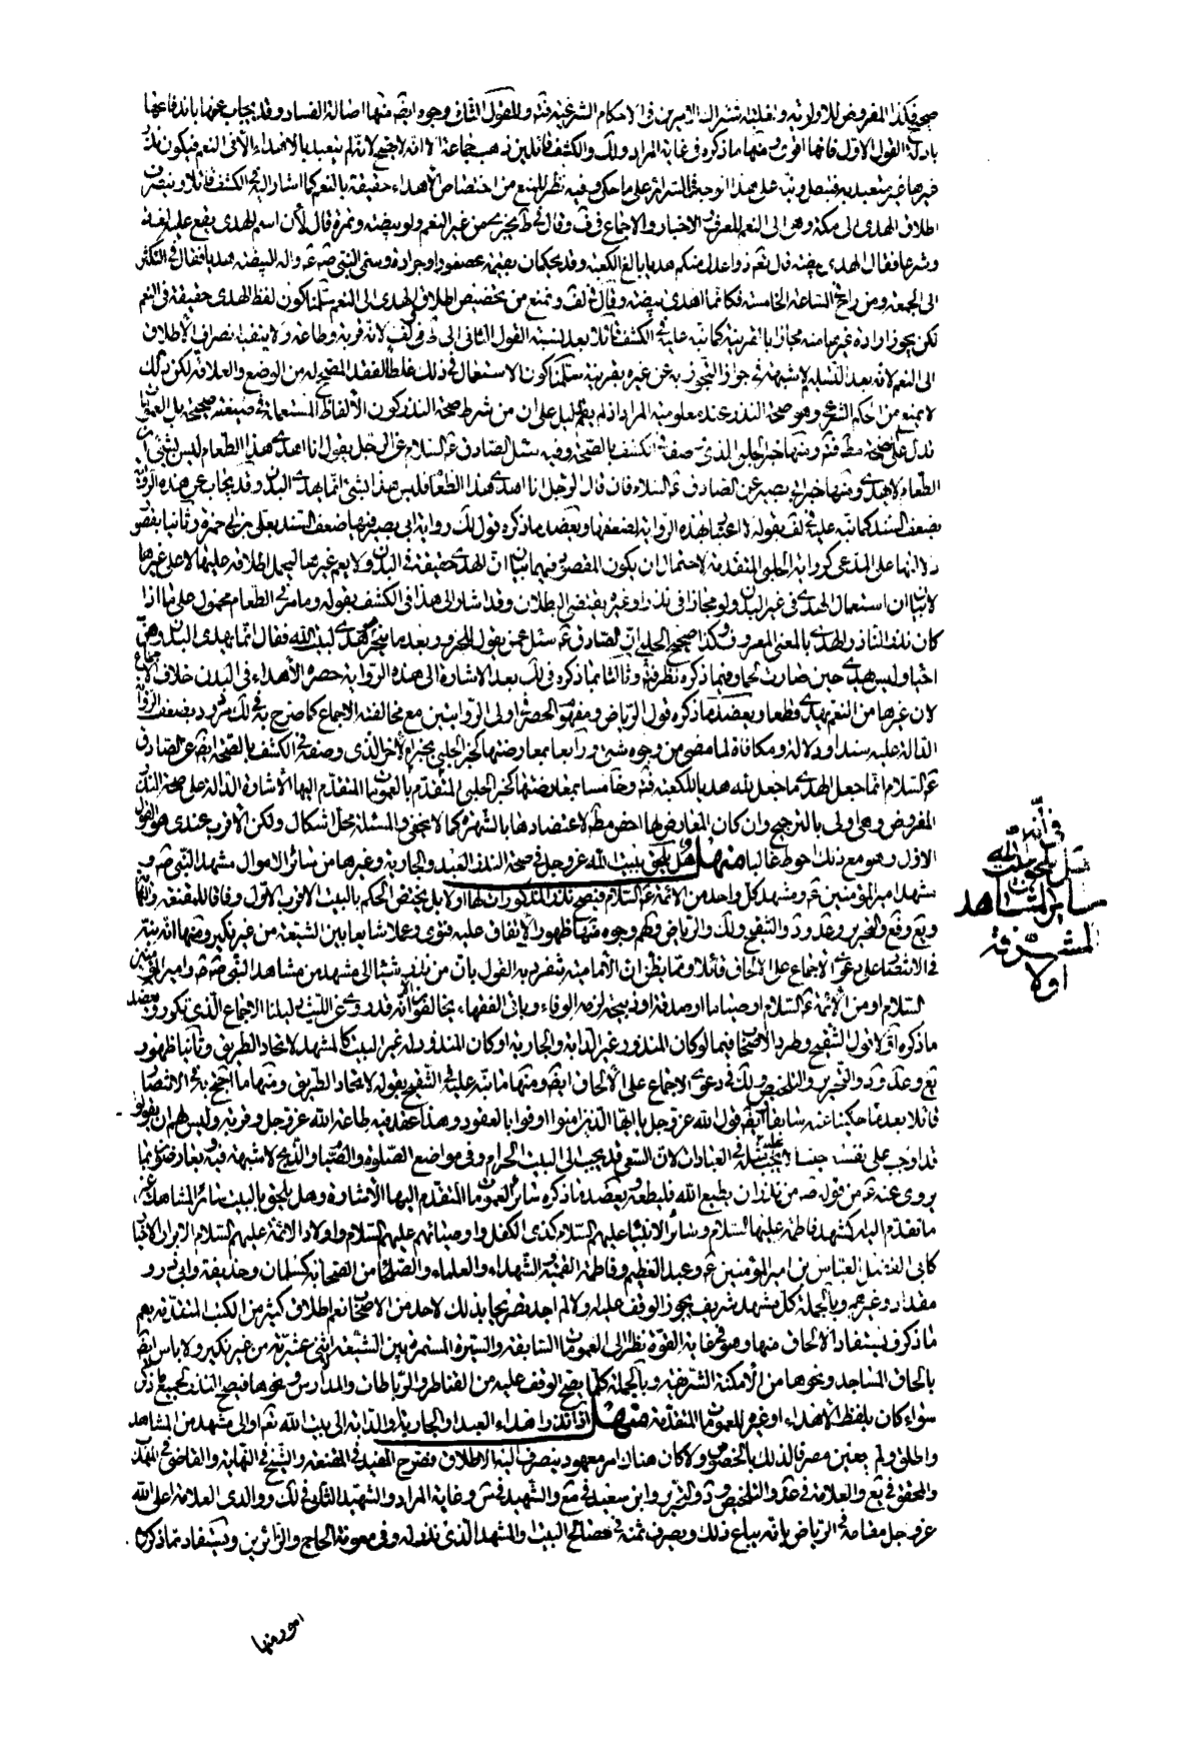 صحيح فكذا المفروض للاولوية و اغلبية اشتراك الامرين فى الاحكام الشرعية فتم وللقول الثانى وجوه ايضا منها اصالة الفساد وقد يجاب عنها باندفاعها
بادلة القول الاول فانها اقوى ومنها ما ذكره فى غاية المراد ولك والكشف قائلين ذهب جماعة الا انه لا يصح لانه لم يتعبد بالاهداء الا فى النعم فيكون نذر
غيرها غير متعبد به فيبطل ونبه على هذا الوجه فى السرائر على ما حكى وفيه نظر للمنع من اختصاص الاهداء حقيقة بالنعم كما اشار اليه فى الكشف قائلا وينصرف
اطلاق الهدى الى مكة وهو الى النعم للعرف والاخبار والاجماع فى ف وقال فى ط يجزى من غير النعم ولو بيضة وتمرة قال لان اسم الهدى يقع عليه لغة
وشرعا فقال اهدى بيضة قال نعم ذوا عدل منكم هديا بالغ الكعبة وقد يحكمان بقيمة عصفور او جرادة وسمى النبى ص البيضة هديا فقال فى التبكير
الى الجمعة ومن راح فى الساعة الخامسة فكانما اهدى بيضة وقال فى لف ونمنع من تخصيص اطلاق الهدى الى النعم سلمنا كون لفظ الهدى حقيقة فى النعم
لكن يجوز ارادة غيرها منه مجازا بالقرينة كما نبه عليه فى الكشف قائلا بعد نسبة القول الثانى الى لانه قربة وطاعة ولا ينفيه انصراف الاطلاق
الى النعم لانه بعد التسليم لا شبهة فى جواز التجوز به عن غيره بقرينة سلمنا كون الاستعمال فى ذلك غلطا لفقد المصحح له من الوضع والعلاقة لكن ذلك
لا يمنع من الحكم الشرعى وهو صحة النذر عند معلومية المراد اذ لم يقم دليل على ان من شرط صحة النذر كون الالفاظ المستعملة فى صيغته صحيحة بل العمومات
تدل على صحته مط فتم ومنها خبر الحلبى الذى وصفه فى الكشف بالصحة وفيه سئل الصادق ع عن الرجل يقول انا اهدى هذا الطعام ليس بشئ ان
الطعام لا يهدى ومنها خبر ابى بصير عن الصادق عليه السلام فان قال الرجل انا اهدى هذا الطعام فليس هذا بشئ انما يهدى البدن وقد يجاب عن هذه الرواية
بضعف السند كما نبه عليه فى لف بقوله لا اعتبار بهذه الرواية لضعفها ويعضده ما ذكره قول لك رواية ابى بصير فيها ضعف السند بعلى بن ابى حمزة وثانيا بقصور
دلالتها على المدعى كرواية الحلبى المتقدمة لاحتمال ان يكون المقصود فيهما بيان ان الهدى حقيقة فى البدن ولا يعم غيرها ليحمل اطلاقه عليها لا على غيرها
لا بيان ان استعمال الهدى فى غير البدن ولو مجازا فى نذر او غيره يقتضى البطلان وقد اشار الى هذا فى الكشف بقوله وما مر فى الطعام محمول على ما اذا
كان نذر الناذر والهدى بالمعنى المعروف وكذا صحيح الحلبى ان الصادق ع سئل عمن يقول للجزور بعد ما ينحر هو هدى لبيت الله فقال انما يهدى البدن وهن
احياء وليس يهدى حين صارت لحما وفيما ذكره نظر فتم وثالثا بما ذكره فى لك بعد الاشارة الى هذه الرواية حصره الاهداء فى البدن خلاف الاجماع
لان غيرها من النعم يهدى قطعا ويعضد ما ذكره قول الرياض ومفهوم الحصر فى اولى الروايتين مع مخالفته الاجماع كما صرح به فى لك مردود بضعف الرواية
الدالة عليه سندا ودلالة ومكافاة لما مضى من وجوه شتى ورابعا بمعارضتها كخبر الحلبى بخبره الاخر الذى وصفه فى الكشف بالصحة ايضا عن الصادق
عليه السلام انما جعل الهدى ما جعل لله هديا للكعبة فتم وخامسا بمعارضتها كخبر الحلبى المتقدم بالعمومات المتقدم اليها الاشارة الدالة على صحة النذر
المفروض وهى اولى بالترجيح وان كان المعارض لها اخص مط لاعتضادها بالشهرة كما لا يخفى والمسئلة محل اشكال ولكن الاقرب عندى هو القول
الاول وهو مع ذلك احوط غالبا منها هل يلحق ببيت الله عز وجل فى صحة النذر العبد والجارية وغيرها من سائر الاموال مشهد النبى ص و
مشهد امير المؤمنين ع ومشهد كل واحد من الائمة عليهم السلام فيصح نذر المذكورات لها اولا بل يختص الحكم بالبيت الاقرب الاول وفاقا للمقنعة والنهاية
ويع وقع والتحرير وعد ود والتنقيح ولك والرياض ولهم وجوه منها ظهور الاتفاق عليه فتوى وعملا شايعا بين الشيعة من غير نكير ومنها انه نبه
فى الانتصار على دعوى الاجماع على الالحاق قائلا ومما يظن ان الامامية تنفرد به القول بان من نذر شيئا الى مشهد من مشاهد النبى ص و امير المؤمنين
السلام او من الائمة عليهم السلام او صياما او صدقة او ذبيحة لزمه الوفاء وباقى الفقهاء يخالفون الا انه قد روى عن الليث لبلنا الاجماع الذى تكرر ويعضد
ما ذكره اولا قول التنقيح وطرد الاصحاب فيما لو كان المنذور غير الدابة والجارية او كان المنذور له غير البيت كالمشهد لاتحاد الطريق وثانيا ظهور
يع وعد ود والتحرير والتلخيص ولك فى دعوى الاجماع على الالحاق ايضا ومنها ما نبه عليه فى التنقيح بقوله لاتحاد الطريق ومنها ما احتج به فى الانتصار
قائلا بعد ما حكينا عنه سابقا ايضا قول الله عز وجل يا ايها الذين امنوا اوفوا بالعقود وهذا عقد فيه طاعة الله عز وجل وقربة وليس لهم ان يقولوا
قد اوجب على نفسه جنسا لا يجب عليه مثله فى العبادات لان السعى قد يجب الى البيت الحرام وفى مواضع الصلوة والصيام والذبح لا شبهة فيه ويعارضون بما
يروى عنه ع من قوله ص من نذر ان يطيع الله فليطعه ويعضد ما ذكره سائر العمومات المتقدم اليها الاشارة وهل يلحق بالبيت سائر المشاهد غير
ما تقدم اليه كمشهد فاطمة عليها السلام وسائر الانبياء عليهم السلام كذى الكفل واوصيائهم عليهم السلام واولاد الائمة عليهم السلام الابرار الاتقياء
كابى الفضل العباس بن امير المؤمنين ع وعبد العظيم وفاطمة القمية والشهداء والعلماء والصلحاء من الصحابة كسلمان وحذيفة وابى ذر و
مقداد وغيرهم وبالجملة كل مشهد شريف يجوز الوقف عليه اولا لم اجد تصريحا بذلك لاحد من الاصحاب نعم اطلاق كثير من الكتب المتقدمة يعم
ما ذكر فيستفاد الالحاق منها وهو فى غاية القوة نظرا الى العمومات السابقة والسيرة المستمرة بين الشيعة الاثنى عشرية من غير نكير ولا باس ايضا
بالحاق المساجد ونحوها من الامكنة الشريفة وبالجملة كلما يصح الوقف عليه من القناطر والرباطات والمدارس ونحوها فيصح النذر لجميع ما ذكر
سواء كان بلفظ الاهداء او غيره للعمومات المتقدمة منها اذا نذر اهداء العبد او الجارية او الدابة الى بيت الله تعم او الى مشهد من المشاهد
واطلق ولم يعين مصرفا لذلك بالخصوص ولا كان هناك امر معهود ينصرف اليه الاطلاق فصرح المفيد فى المقنعة والشيخ فى النهاية والقاضى فى المهذب
والمحقق فى يع والعلامة فى عد والتلخيص ود والتحرير وابن سعيد فى مع والشهيد فى س وغاية المراد والشهيد الثانى فى لك ووالدى العلامة اعلى الله
عز وجل مقامه فى الرياض بانه يباع ذلك ويصرف ثمنه فى مصالح البيت والمشهد الذى نذر له وفى معونة الحاج والزائرين ويستفاد مما ذكروه
امور منها
فى انه
هل يلحق ببيت الله
سائر المشاهد
المشرفة
اولا